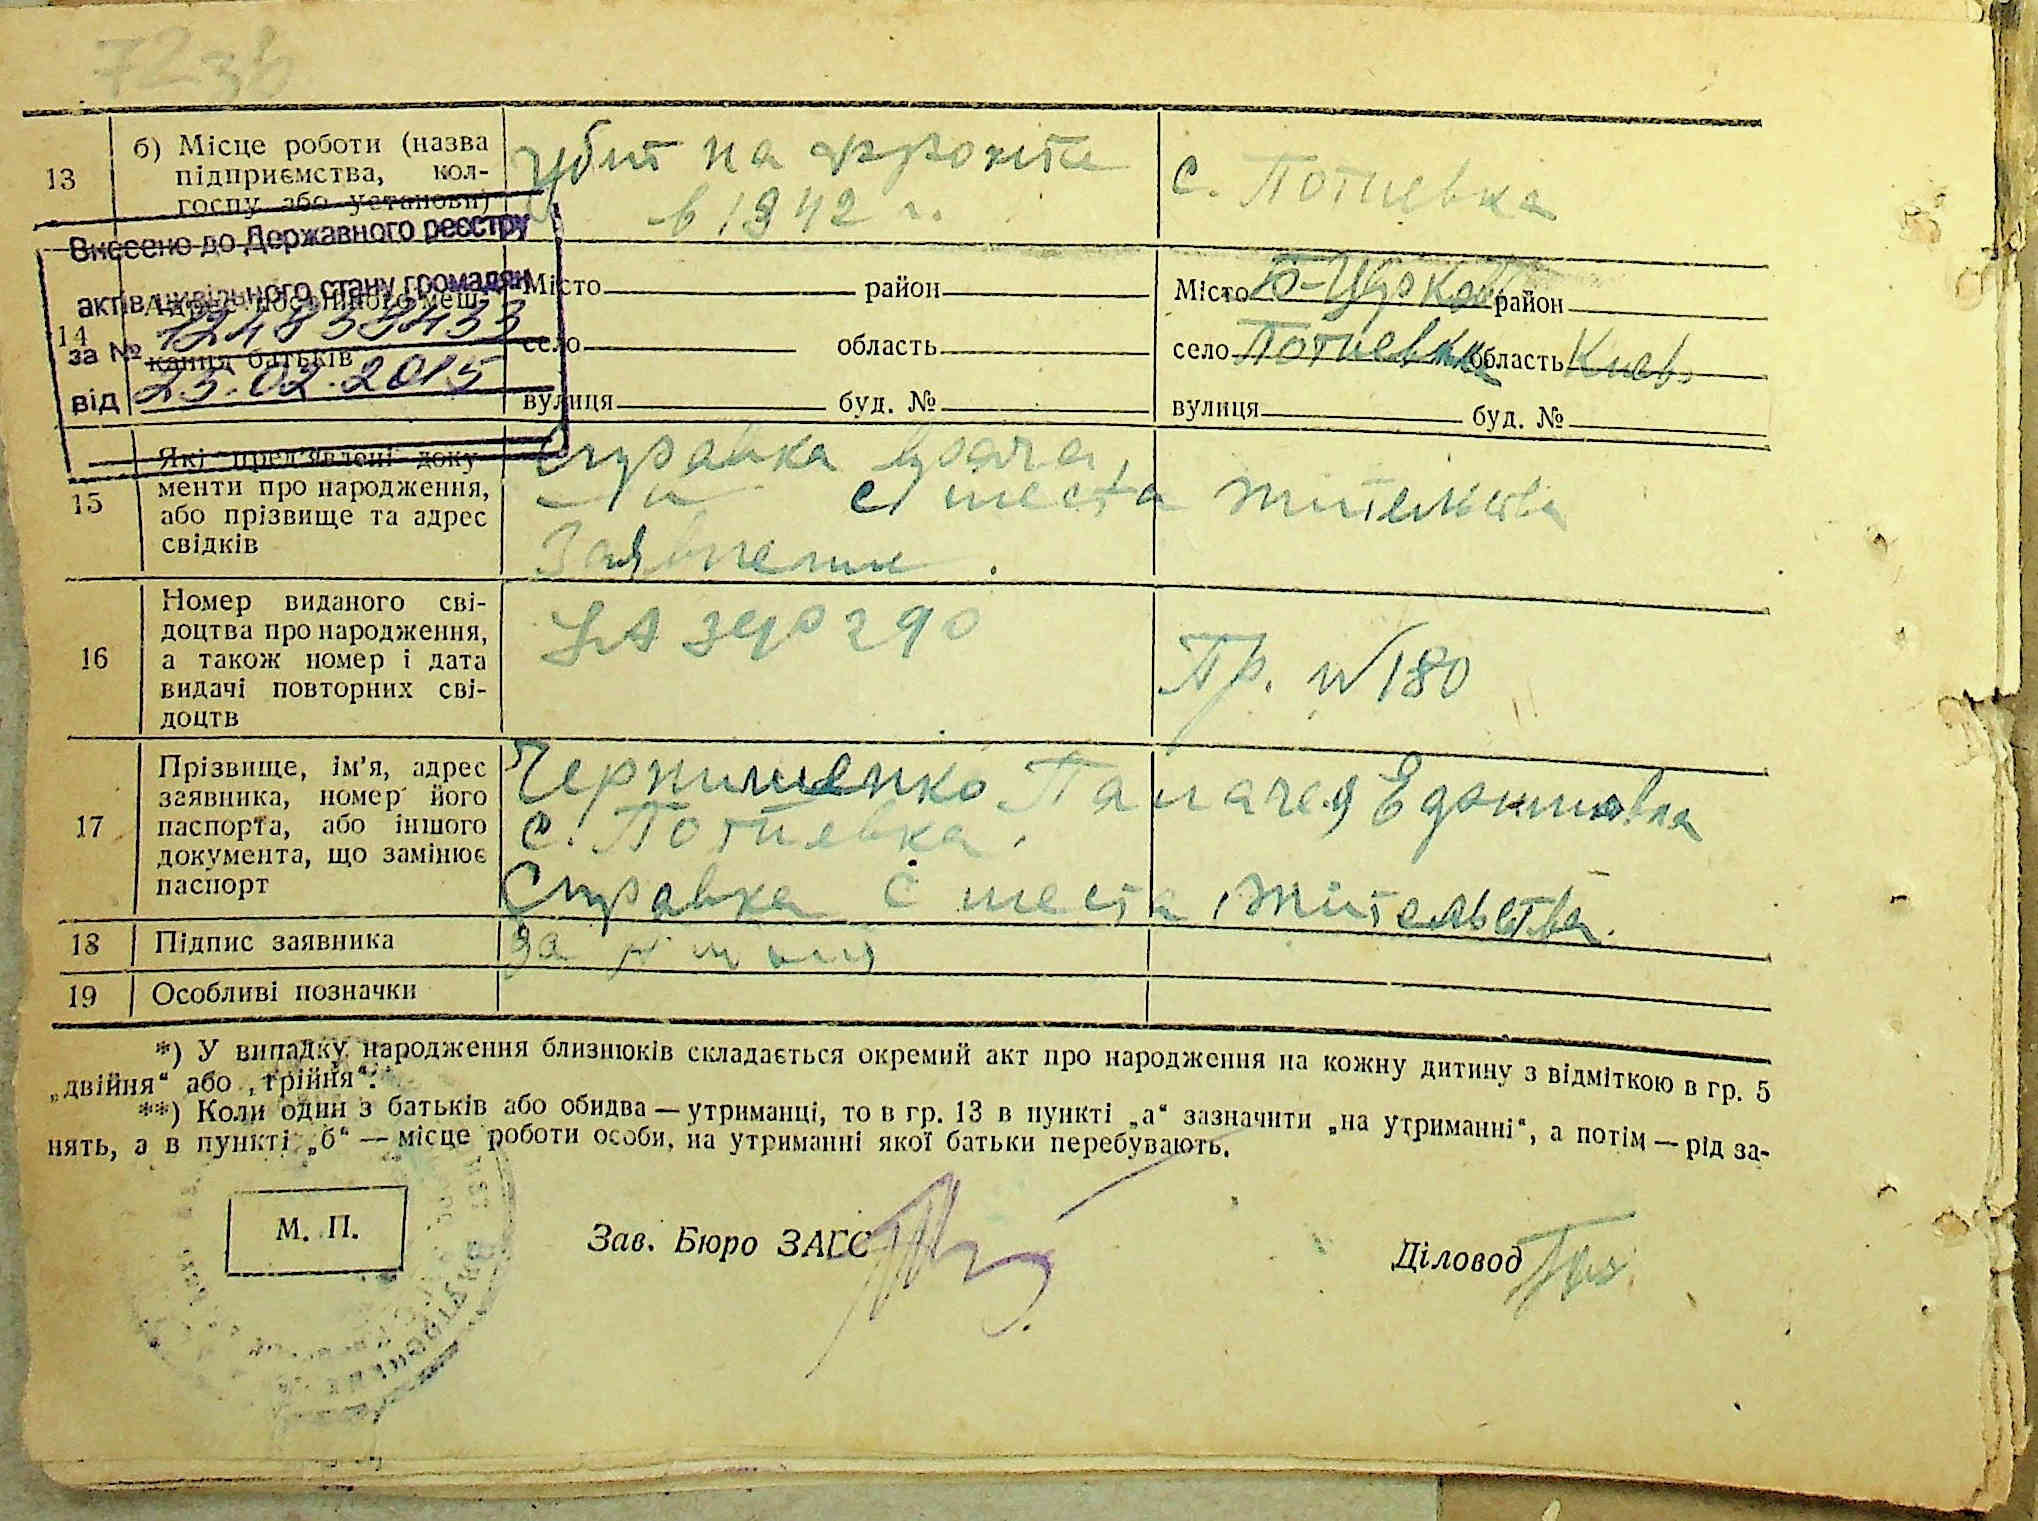 72 зв
13
б) Місце роботи (назва
підприємства, кол-
госпу або установи)
убит на фронте
в 1942 г.
с. Потиевка
Внесено до Державного реєстру
актів цивільного стану громадян
за №
від 23.02.2015
14
Адрес постійного меш-
кання батьків
Місто район
село область
вулиця буд. №
Місто Б-Церков район
село Потиевка область Киев.
вулиця буд. №
15
Які пред'явлені доку-
менти про народження,
або прізвище та адрес
свідків
Справка врача,
—„— с места жительства
Заявление.
16
Номер виданого сві-
доцтва про народження,
а також номер і дата
видачі повторних сві-
доцтв
290
Пр. №180
17
Прізвище, ім’я, адрес
заявника, номер його
паспорта, або іншого
документа, що замінює
паспорт
Черниченко
с. Потиевка.
Справка с места жительства.
18
Підпис заявника
за
19
Особливі позначки
*) У випадку народження близнюків складається окремий акт про народження на кожну дитину з відміткою в гр. 5
„двійня“ або „трійня“.
**) Коли один з батьків або обидва — утриманці, то в гр. 13 в пункті „а“ зазначити „на утриманні“, а потім — рід за-
нять, а в пункті „б“ — місце роботи особи, на утриманні якої батьки перебувають.
М. П.
Зав. Бюро ЗАГС
Діловод